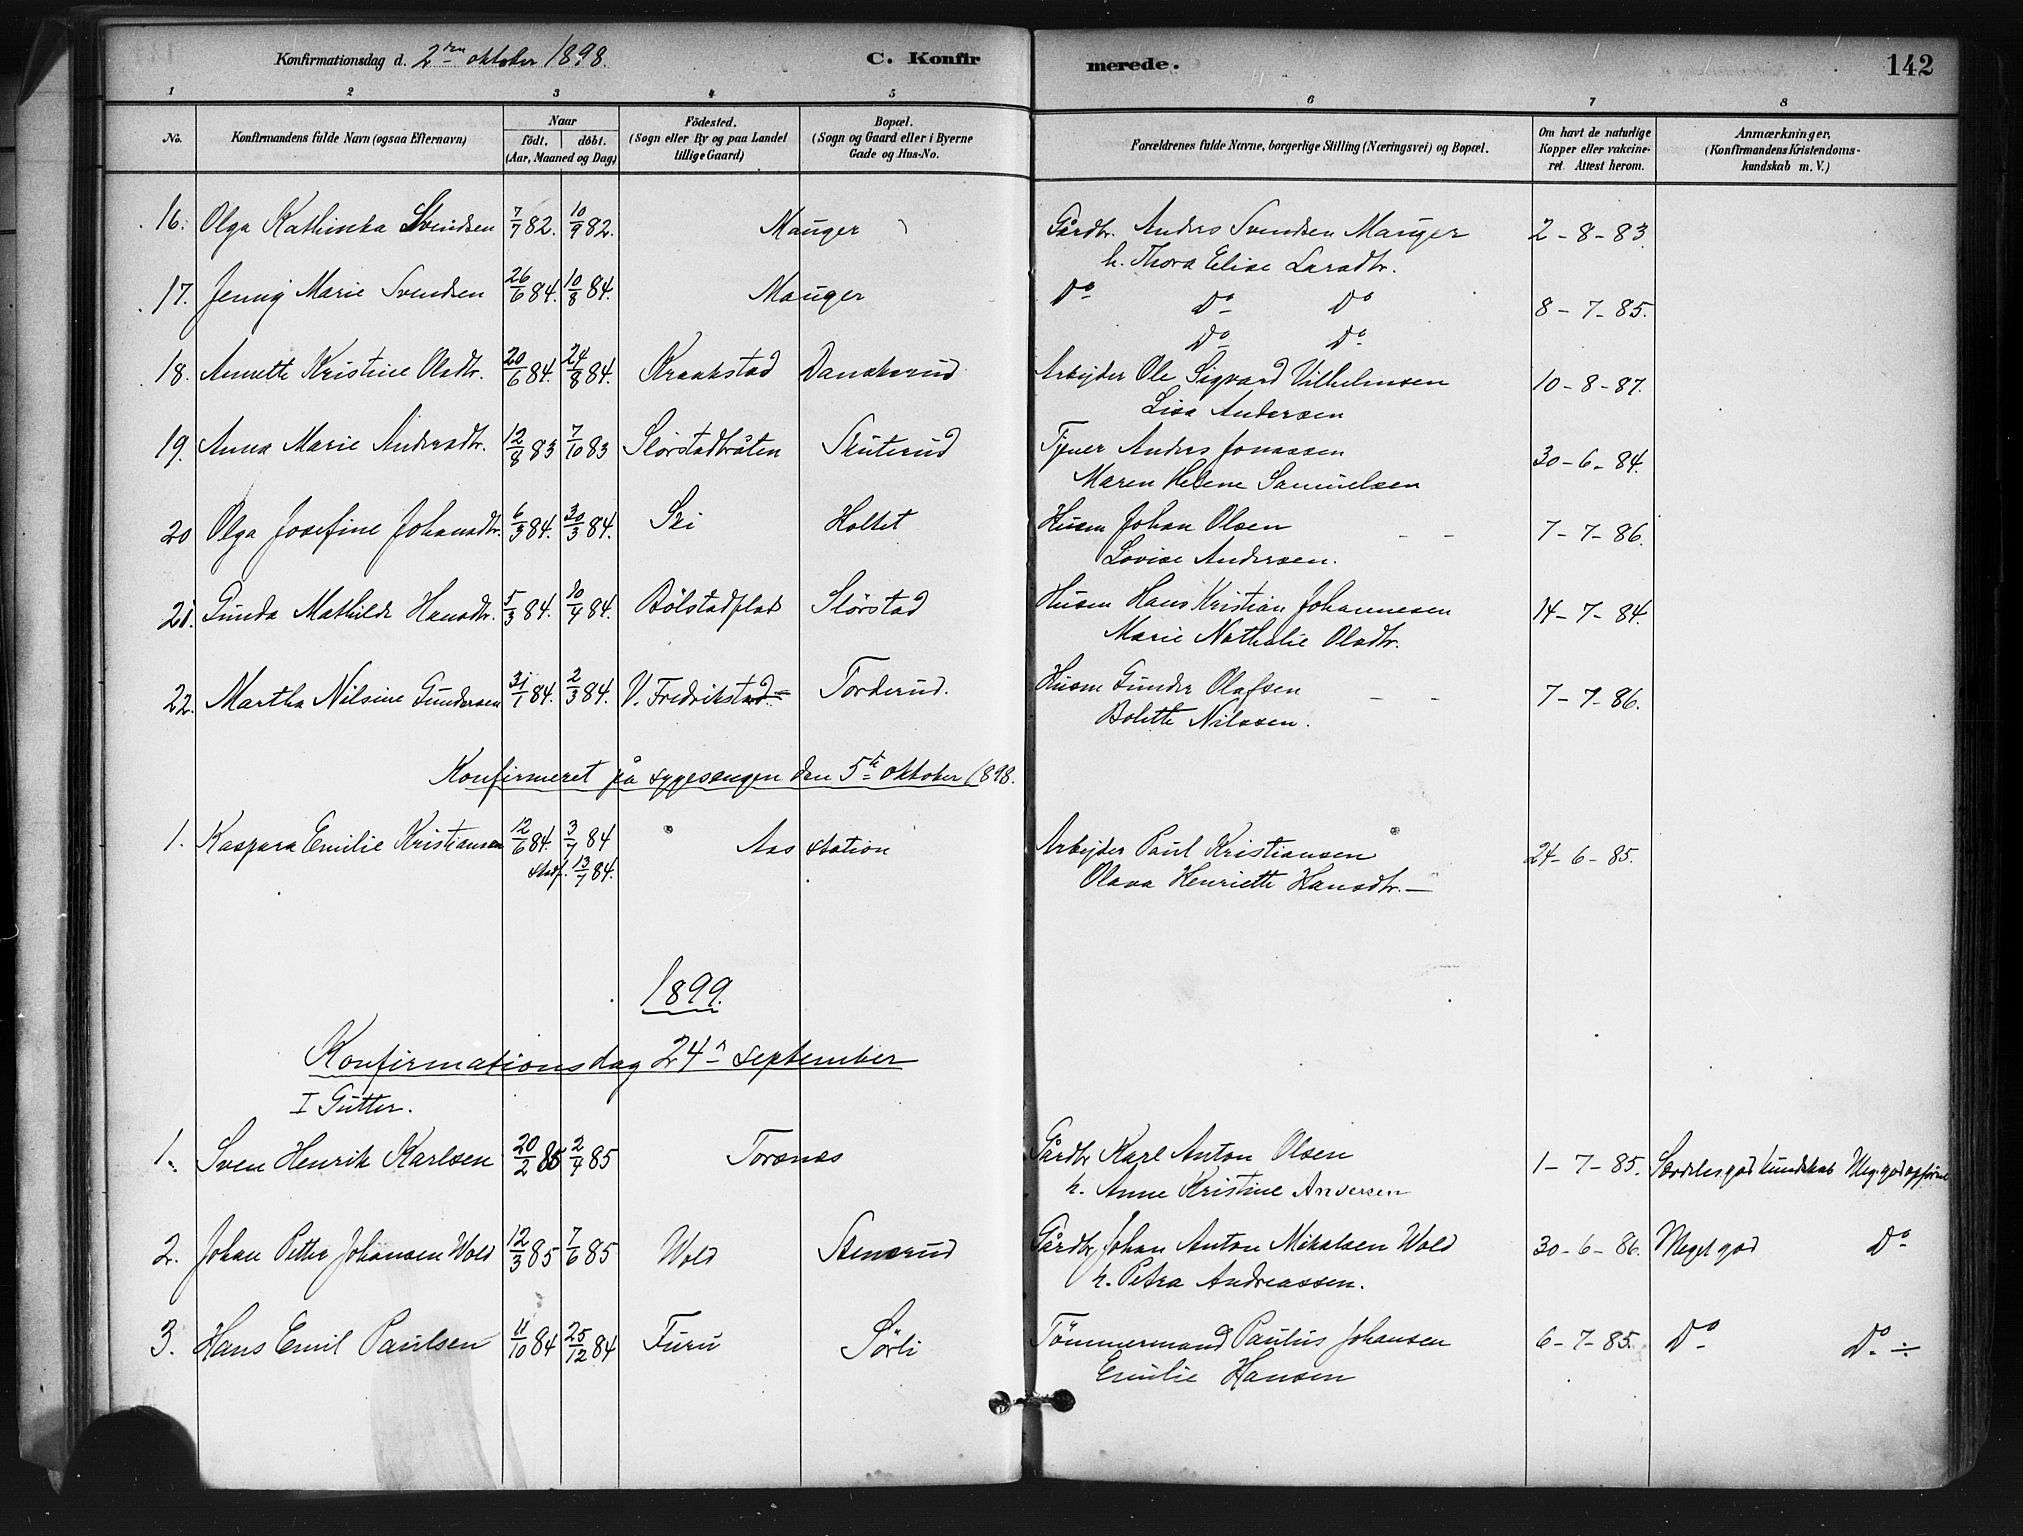 Konfirmationsdag d. 2den oktober 1898. C. Konfirmerede. 142
1 2 3 4 5 6 7 8
No. Konfirmandens fulde Navn (ogsaa Efternavn) Naar födt, döbt. (Aar, Maaned og Dag) Födested. (Sogn eller By og paa Landet tillige Gaard) Bopæl. (Sogn og Gaard eller i Byerne Gade og Hus-No. Forældrenes fulde Navne, borgerlige Stilling (Næringsvei) og Bopæl. Om havt de naturlige Kopper eller vakcineret. Attest herom. Anmærkninger, (Konfirmandens Kristendomskundskab m. V.)
16. Olga Kathinka Svendsen 7/7 82. 10/9 82. Mauger Gårdbr. Anders Svendsen Mauger 2-8-83.
h. Thora Elise Larsdtr.
17. Jenny Marie Svendsen 26/6 84. 10/8 84. Mauger Do Do Do 8-7-85.
Do Do
18. Annette Kristine Olsdtr. 20/6 84. 24/8 84. Kraakstad Danskerud Arbejder Ole Sigvard Vilhelmsen 10-8-87.
Lisa Andersen
19. Anna Marie Andersdtr. 12/8 83 7/10 83 Störstadbråten Skuterud Tjener Anders Jonassen 30-6-84.
Maren Helene Samuelsen
20 Olga Josefine Johansdtr. 6/3 84. 30/3 84. Ski Holtet Husm Johan Olsen - - 7-7-86.
Lovise Andersen.
21. Gunda Mathilde Hansdtr. 5/3 84. 20/4 84. Bölstadplads Störstad Husm Hans Kristian Johannesen 14-7-84.
Marie Nathalie Olsdtr.
22. Martha Nilsine Gundersen 31/1 84. 2/3 84. V. Fredrikstad Torderud. Husm Gunder Olafsen - - 7-7-86.
Bolette Nilssen.
Konfirmeret på sygesengen den 5te oktober 1898.
1. Kaspara Emilie Kristiansen 12/6 84. 3/7 84 Aas station Arbejder Paul Kristiansen 24-6-85.
stadf. 13/7 84. Olava Henriette Hansdtr. —
1899.
Konfirmationsdag 24n september
I Gutter.
1. Sven Henrik Karlsen 20/2 85 2/4 85 Torsnes Gårdbr Karl Anton Olsen 1-7-85. Særdeles god kundskab Meg. god opførsel
h. Anne Kristine Andersen
2. Johan Petter Johansen Wold 12/3 85 7/6 85 Wold Stenerud Gårdbr Johan Anton Mikalsen Wold 30-6-86. Meget god Do
h. Petra Andreassen.
3. Hans Emil Paulsen 11/10 84 25/12 84 Furu Sörli Tömmermand Paulus Johansen 6-7-85. Do Do ÷
Emilie Hansen